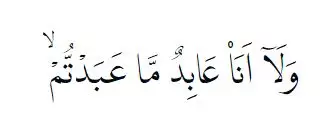 وَلَآ اَنَا۠ عَابِدٌ مَّا عَبَدْتُّمْۙ